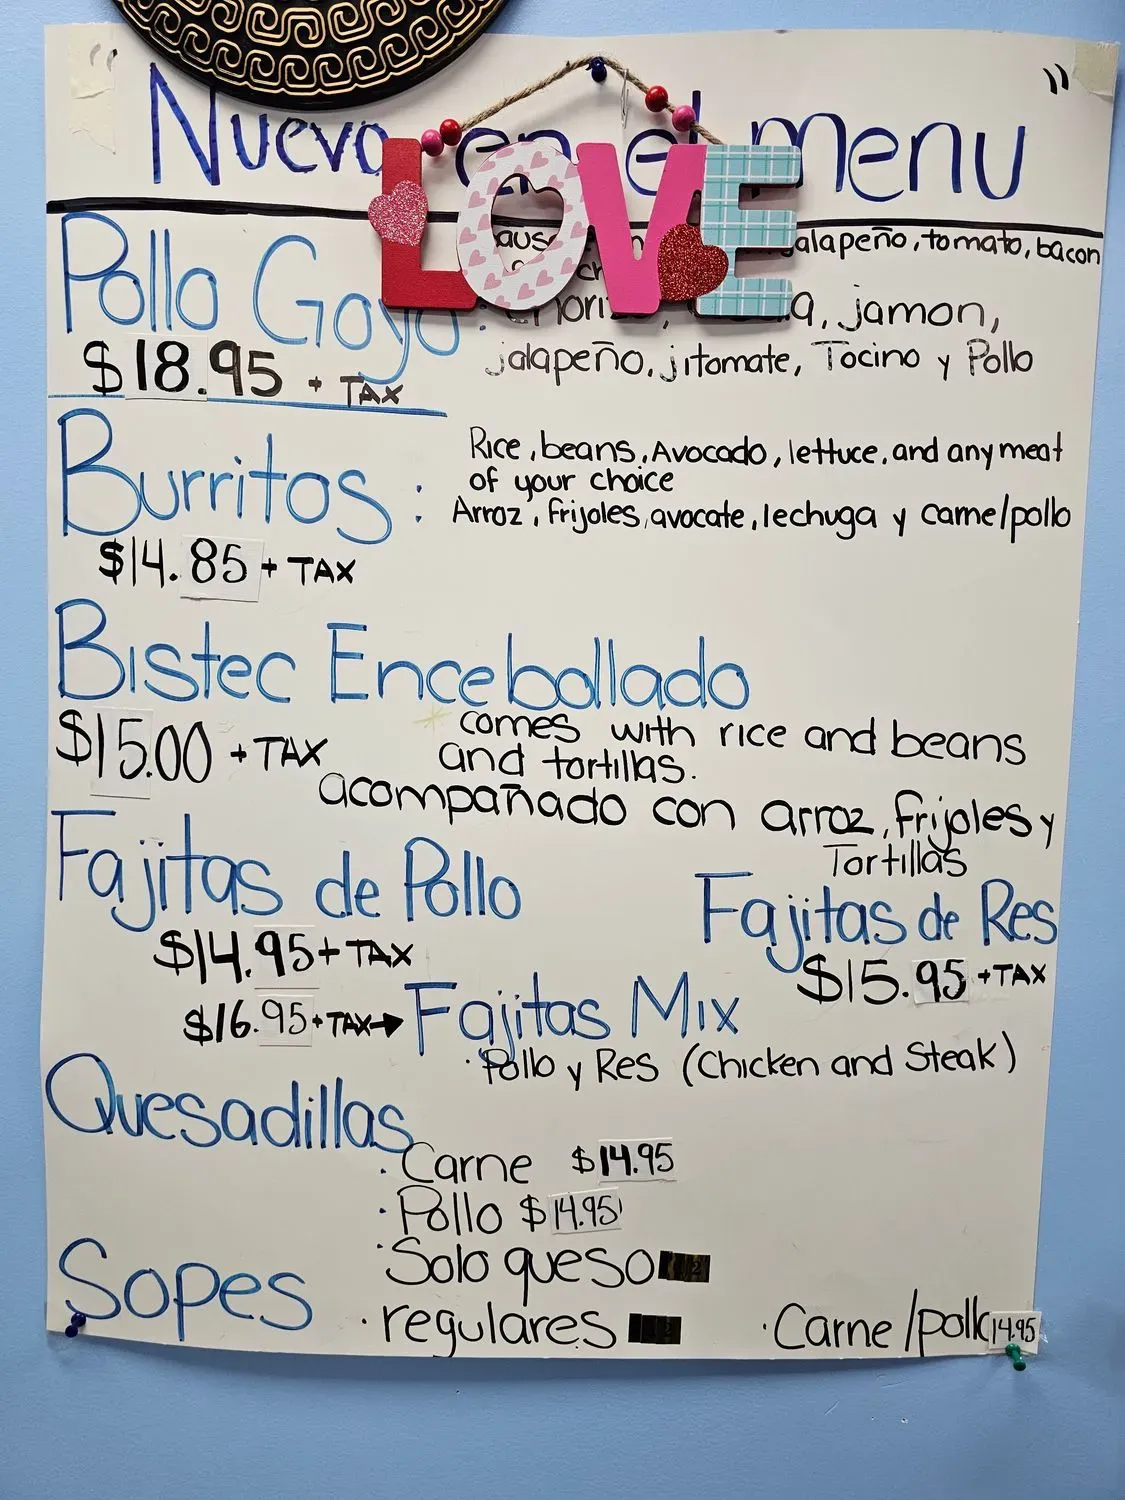 " Nuevo en el menu "
LOVE
Pollo Goyo: jalapeño, tomato, bacon
jamon,
jalapeño, jitomate, Tocino y Pollo
$18.95 + TAX
Burritos: Rice, beans, Avocado, lettuce, and any meat
of your choice
Arroz, frijoles, avocate, lechuga y carne/pollo
$14.85 + TAX
Bistec Encebollado
$15.00 + TAX
comes with rice and beans
and tortillas.
acompañado con arroz, frijoles y
Tortillas
Fajitas de Pollo
$14.95 + TAX
Fajitas de Res
$15.95 + TAX
$16.95 + TAX → Fajitas Mix
· Pollo y Res (Chicken and Steak)
Quesadillas
· Carne $14.95
· Pollo $14.95
· Solo queso
Sopes · regulares · Carne/pollo 14.95